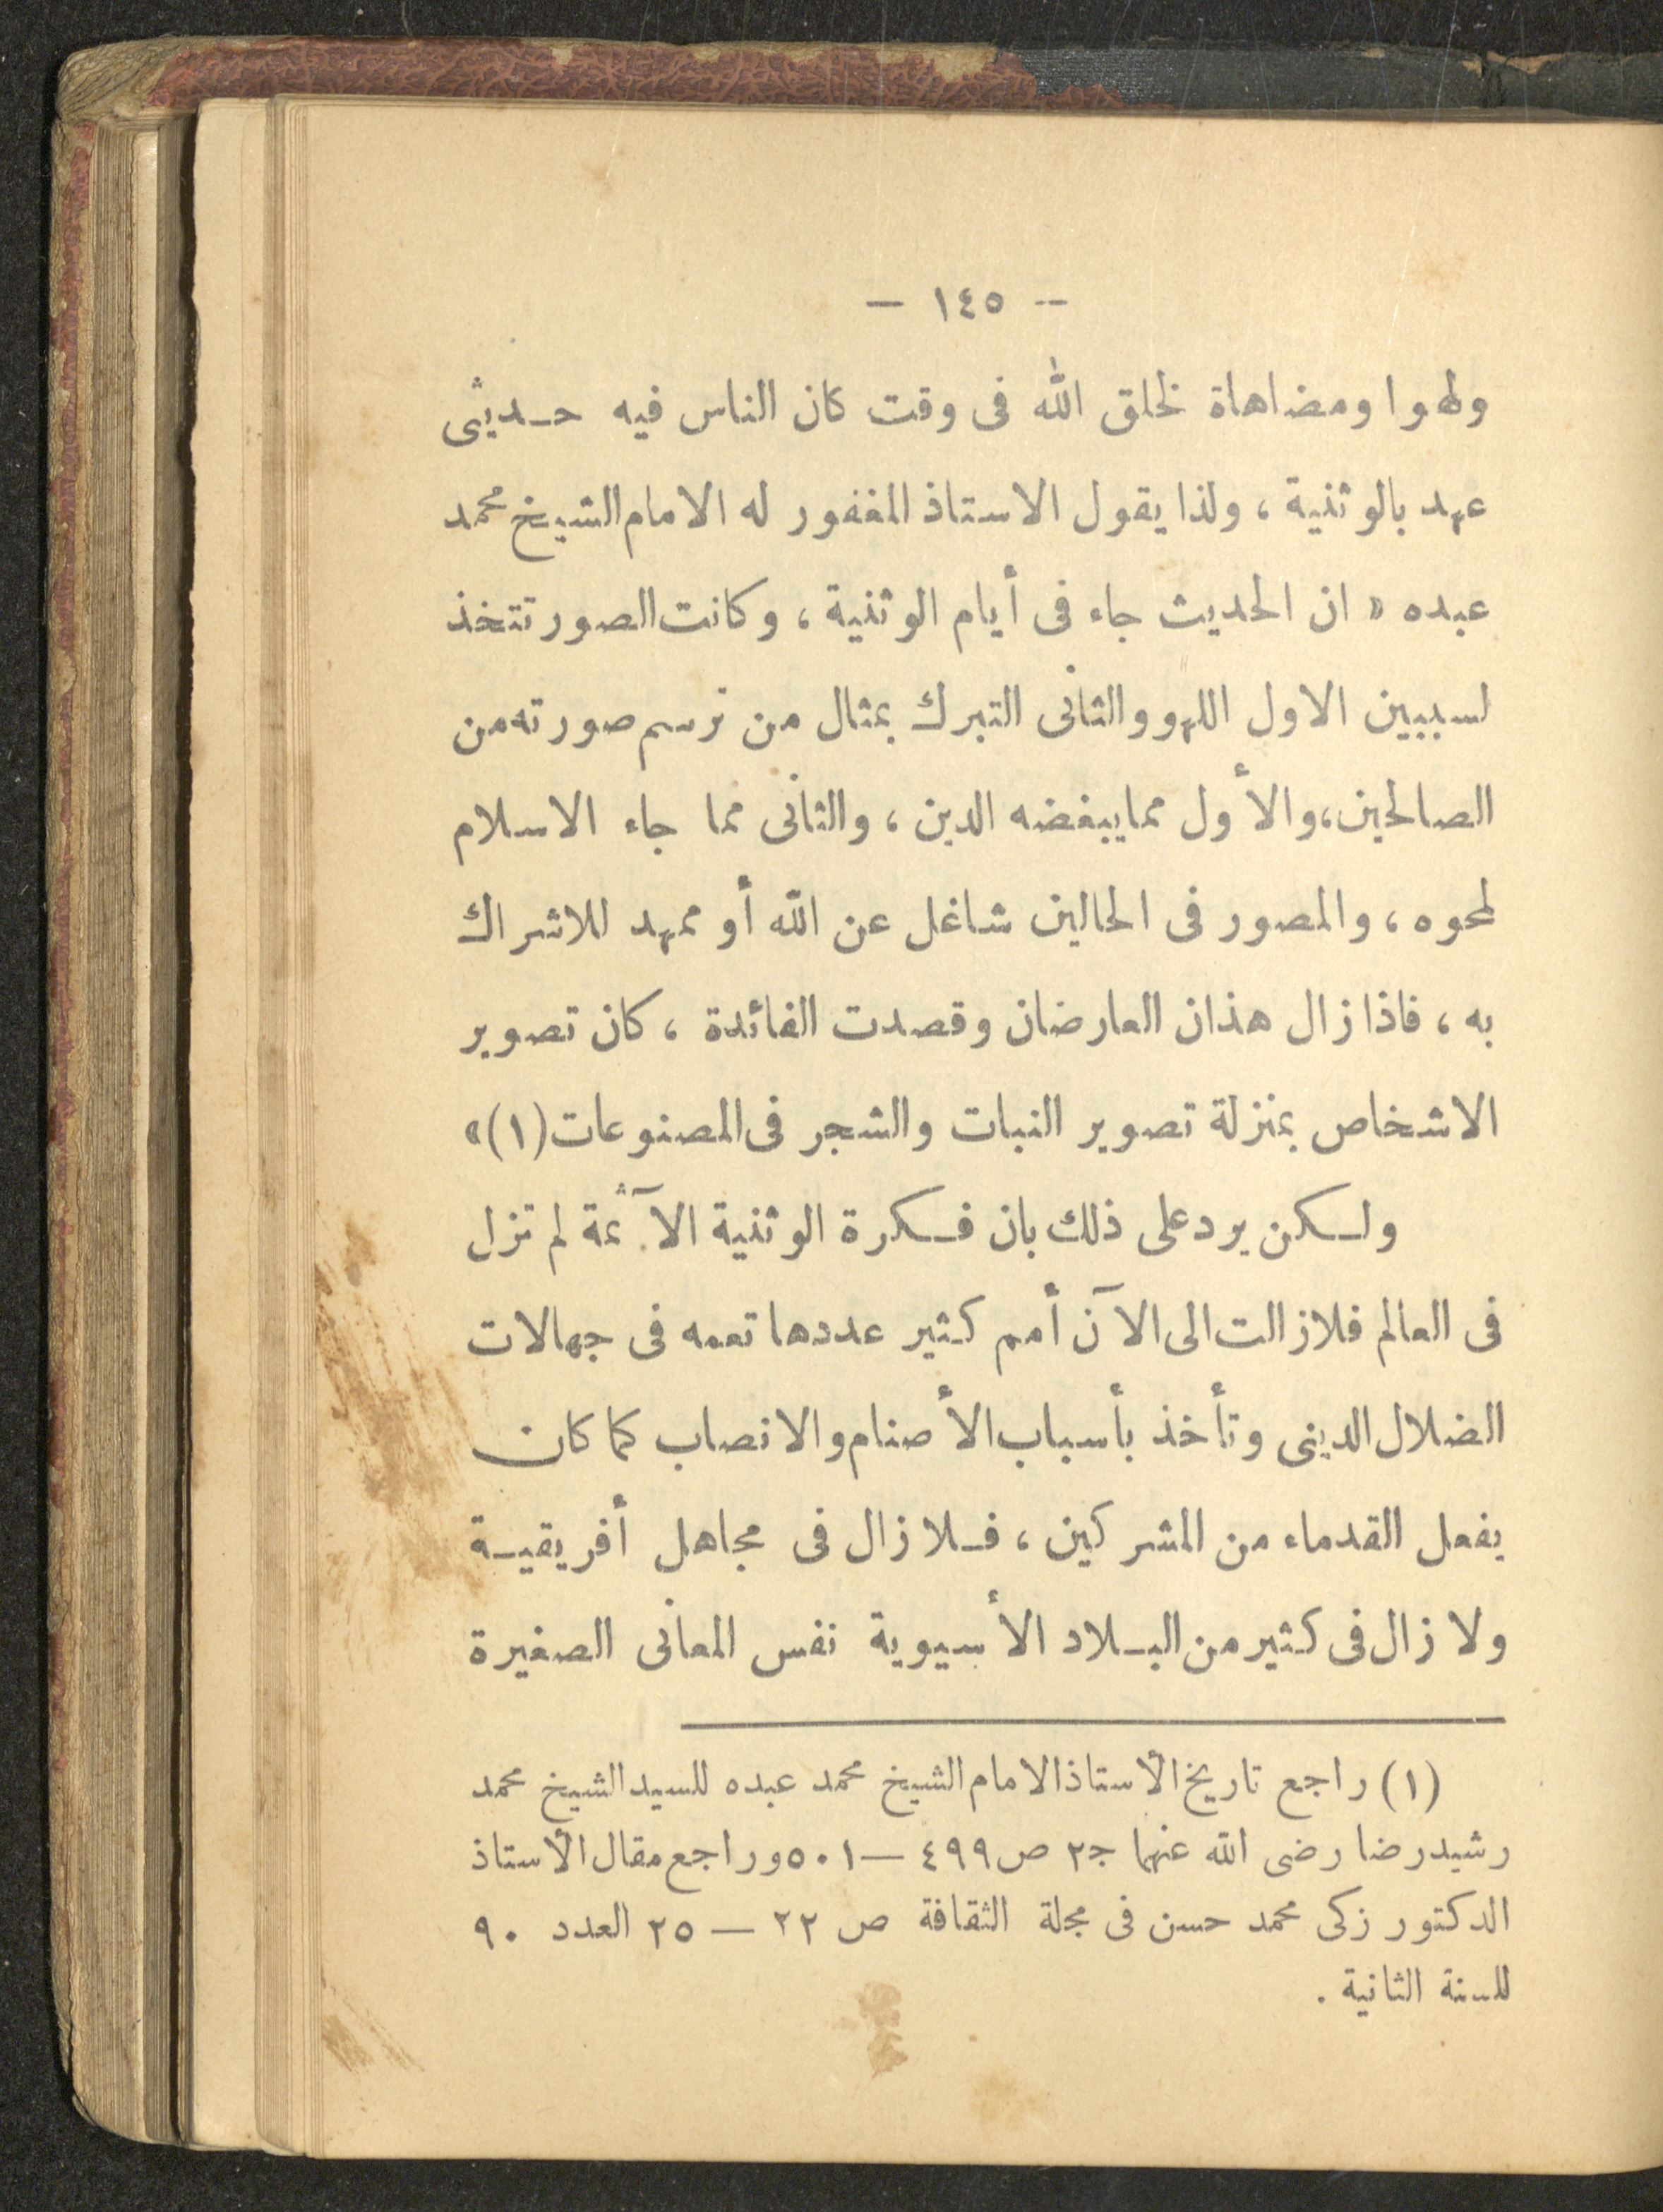 — ١٤٥ —
ولهوا ومضاهاة لخلق الله فى وقت كان الناس فيه حديثى
عهد بالوثنية ، ولذا يقول الاستاذ المغفور له الامام الشيخ محمد
عبده « ان الحديث جاء فى أيام الوثنية ، وكانت الصور تتخذ
لسببين الاول اللهو والثانى التبرك بمثال من ترسم صورته من
الصالحين ، والأول مما يبغضه الدين ، والثانى مما جاء الاسلام
لمحوه ، والمصور فى الحالين شاغل عن الله أو ممهد للاشراك
به ، فاذا زال هذان العارضان وقصدت الفائدة ، كان تصوير
الاشخاص بمنزلة تصوير النبات والشجر فى المصنوعات (١) »
ولكن يرد على ذلك بان فكرة الوثنية الآثمة لم تزل
فى العالم فلا زالت الى الآن أمم كثير عددها تعمه فى جهالات
الضلال الدينى وتأخذ بأسباب الأصنام والانصاب كما كان
يفعل القدماء من المشركين ، فلا زال فى مجاهل أفريقية
ولا زال فى كثير من البلاد الأسيوية نفس المعانى الصغيرة
(١) راجع تاريخ الأستاذ الامام الشيخ محمد عبده للسيد الشيخ محمد
رشيد رضا رضى الله عنهما ج٢ ص ٤٩٩ — ٥٠١ وراجع مقال الأستاذ
الدكتور زكى محمد حسن فى مجلة الثقافة ص ٢٢ — ٢٥ العدد ٩٠
للسنة الثانية .